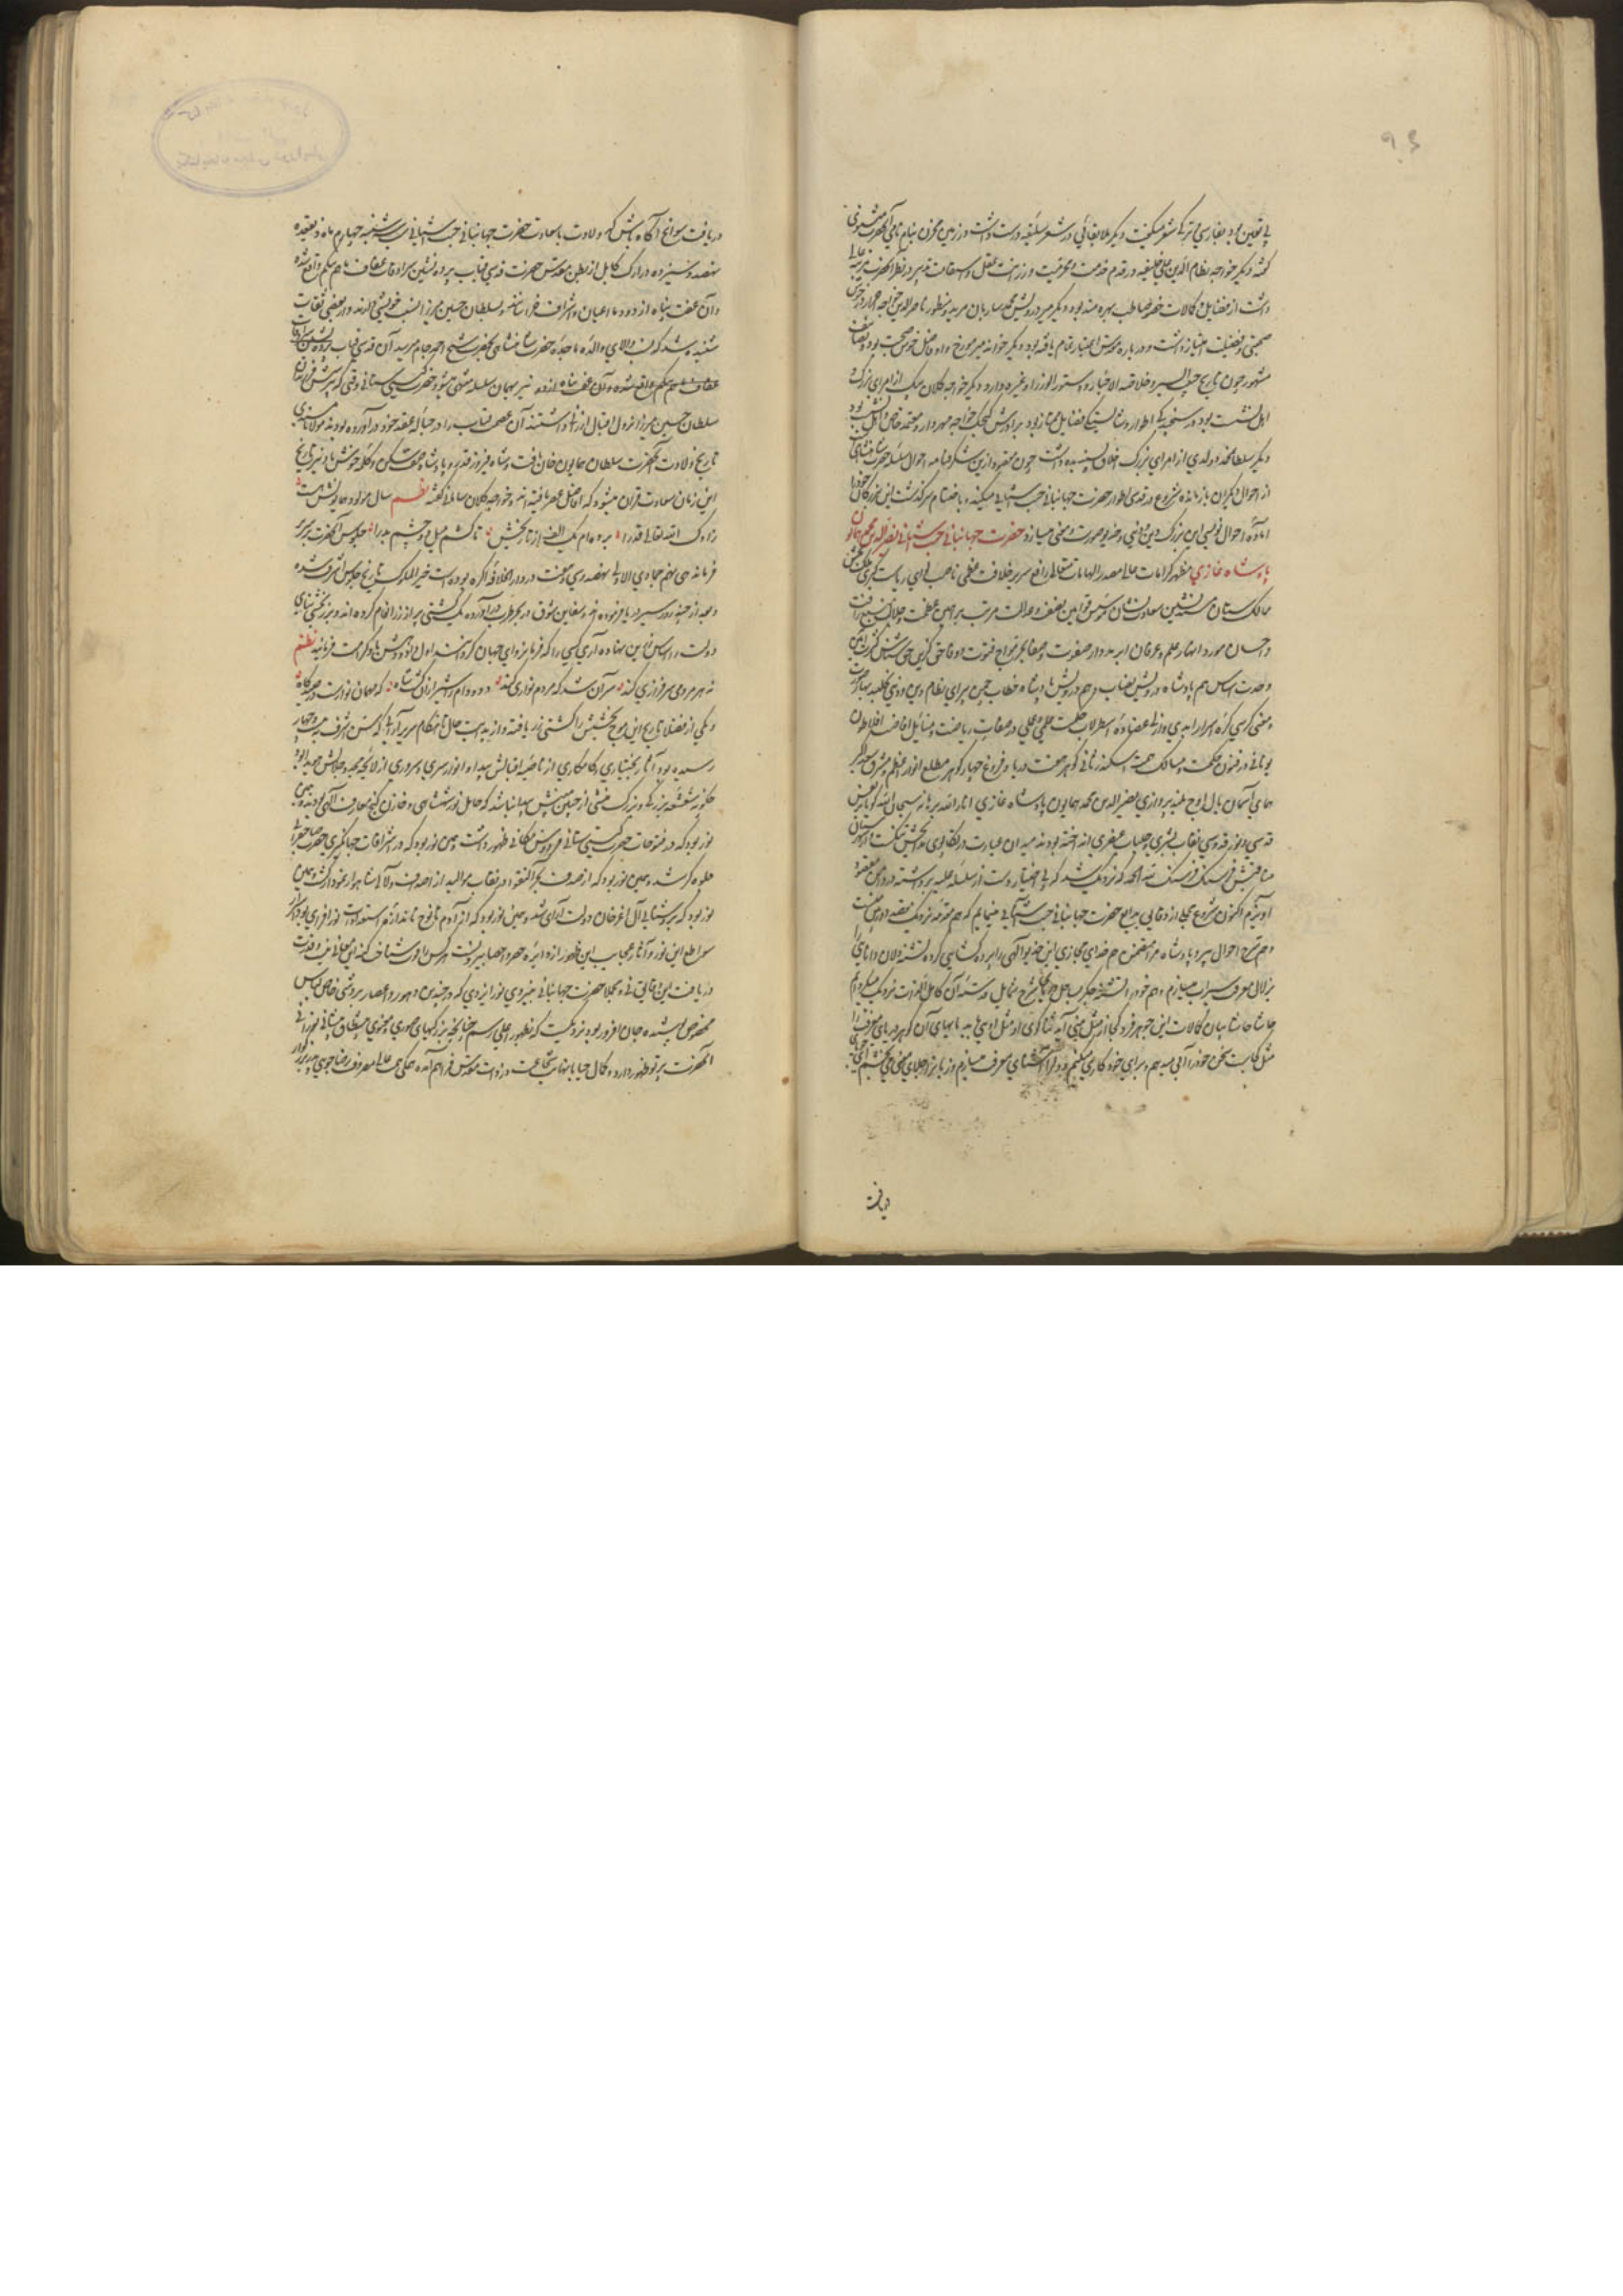 بی تعین بود بفارسی و ترکی شعر میگفت دیگر ملا بقائی در شعر سلیقه درست داشت و در زمین مخزن بنام نامی آنحضرت مثنوی
گفته دیگر خواجه نظام الدین علی خلیفه در قدم خدمت و محرمیت و رزانت عقل و استقامت تدبیر در نظر آنحضرت مرتبه عالی
داشت از فضایل و کمالات خصوصا طب بهره مند بود دیگر میر درویش محمد ساربان مرید و منظور ناصرالدین خواجه احرار در خوش
صحبتی و فضیلت امتیاز داشت و در بارگاه قدس اعتبار تمام یافته بود دیگر خواند میر مورخ و او فاضل خوش صحبت بود و تصانیف
مشهور چون تاریخ حبیب السیر و خلاصة الاخبار و دستور الوزرا و غیره دارد دیگر خواجه کلان بیک از امرای بزرگ و
اهل نشست بود در سنجیدگی اطوار و شایستگی فضایل ممتاز بود برادرش کیچک خواجه مهردار و معتمد خاص و اهل نشست بود
دیگر سلطان محمد دولدی از امرای بزرگ اخلاق پسندیده داشت چون مقصود ازین شکرفنامه احوال سلسله حضرت شاهنشاهی است
از احوال دیگران باز مانده شروع در قدسی اطوار حضرت جهانبانی جنت آشیانی میکند و باختتام سرگذشت این بزرگان خود را
آماده احوال نویسی این بزرگ دین و دنیی و خدیو صورت و معنی میسازد حضرت جهانبانی جنت آشیانی نصیر الدین محمد همایون
پادشاه غازی مظهر کرامات عالی مصدر الهامات متعالی رافع سریر خلافت عظمی ناصب لوای ریاست کبری ملک بخش
ممالک ستان مسند نشین سعادت نشان مؤسس قوانین نصفت و عدالت مرتب براهین عظمت و جلالت منبع رافت
و احسان مورد انهار علم و عرفان ابر مدرار صفوت و صفا بحر مواج فتوت و وفا حق گزین حق شناس کثرت آئین
وحدت اساس هم پادشاه درویش نصاب و هم درویش پادشاه خطاب چمن پیرای نظام دین و دنیی گلچین بهار صورت
و معنی کرسی کره اسرار ابدی و ازلی عضاده اسطرلاب حکمت علمی و عملی در صعاب ریاضت و مسایل افاضت افلاطون
یونانی در فنون حکمت و مسالک همت اسکندر ثانی گوهر هفت دریا و فروغ چهار گوهر مطلع انوار اعظم و مشرق سعد اکبر
همای آسمان بال اوج بلند پروازی نصیر الدین محمد همایون پادشاه غازی انار الله برهانه سبحان الله گویا فیض
قدسی و نور قدوسی نقاب بشری و جلباب عنصری انداخته بودند میدان عبارت در تکاپوی مدایحش تنگست و از بیان
مناقبش فرسنگ فرسنگ لله الحمد که نزدیک شد که بی اختیار دست از سلسله علیه برداشته در دامن مقصود
آویزم اکنون شروع مجملی از وقایع بدایع حضرت جهانبانی جنت آشیانی مینمایم که هم مقدمه نزدیک مقصد دور من است
و هم شرح احوال پیر و پادشاه مرا متضمن هم خدای مجازی این خدیو الهی را پرده گشایی کرده تشنه دلان وادی را
بزلال معرفت سیراب میسازم و هم خود را تشنه جگر بساحل
حاشا حاشا بیان کمالات این جوهر فرد کجا از مثل منی آید ثناگوی او مثل اویی باید بایمای آن گوهر دریای معرفت را
مثل کتابت سخن خود را آبی میدهم و برای خود کاری میکنم و دلرا آشنای معرفت میسازم و زبانرا جلای معنی می بخشم ای جویای
دریافت
دریافت سوانح آگاه باش که ولادت با سعادت حضرت جهانبانی جنت آشیانی شب سه شنبه چهارم ماه ذیقعده
نهصد و سیزده در ارک کابل از بطن مقدس حضرت قدسی قباب پرده نشین سرادقات عفاف ماهم بیگم واقع شده
و آن عفت پناه از دودمان اعیان و اشراف خراسانند و بسلطان حسین میرزا نسبت خویشی دارند و از بعضی ثقات
شنیده شد که نسب والای والده ماجده حضرت شاهنشاهی بحضرت شیخ احمد جام میرسد آن قدسی قباب پرده نشین سرادقات
عفاف ماهم بیگم واقع شده و آن عفت پناه از دو نیز بهمان سلسله منتهی میشود حضرت گیتی ستانی وقتی که بپرسش فرزندان
سلطان حسین میرزا نزول اقبال ارزانی داشتند آن عصمت قباب را در حباله عقد خود درآورده بودند مولانا مسندی
تاریخ ولادت آنحضرت سلطان همایون خان یافت و شاه فیروز قدر و پادشاه صف شکن و کلمه خوش باد نیز تاریخ
این زمان سعادت قران میشود که افاضل عصر یافته اند و خواجه کلان سامانی گفته نظم سال مولود همایونش هست
زادک الله تعالی قدرا برده ام یک الف از تاریخش تا کشم میل دو چشم بد را جلوس آنحضرت بر سریر
فرماندهی نهم جمادی الاولی نهصد و سی و هفت در دار الخلافه اگره بوده است خیر الملوک تاریخ جلوس اشرف شده
و بعد از چند روز سیر دریا فرموده اند و سفاین شوق در بحر طرب درآورده یک کشتی پر از زر انعام کرده اند و بزر بخشی بنای
دولت را اساس زرین نهاده آری کسی را که فرمانروای جهان گردانند اول دل و دستش را کرامت فرمایند نظم
نه هر مردمی سرفرازی کند سر آن شد که مردم نوازی کند دد و دام را شیر از آن گشت شاه که مهمان نوازست در صیدگاه
و یکی از فضلا تاریخ این موج بخشش را کشتی زر یافته و از بدایت حال تا هنگام سریر آرائی که سن شریف به بیست و چهار
رسیده بود آثار بختیاری و کامکاری از ناصیه اقبالش پیدا و انوار سری و سروری از لایحه مجد و جلالش هویدا بود
چگونه شعشعه بزرگی و بزرگ منشی از جبین مبینش پیدا نباشد که حامل نور شاهنشاهی و خازن گنج معارف الهی بودند و همین
نور بود که در فتوحات حضرت گیتی ستانی فردوس مکانی ظهور داشت و همین نور بود که در اشراقات جهانگیری حضرت صاحبقرانی
جلوه گر شد و همین نور بود که از صدف بحر النقوا در نقاب موالید از اصداف و لآلی شاهوار نمودار گشت و همین
نور بود که بروشنایی آن اغز خان دولت آرای شد و همین نور بود که از آدم تا نوح باندازه استعدادات نور افزای بود اسرار
سواطع این نور و آثار عجایب این ظهور از دایره حصر و احصا بیرونست هر کس را قوت شناخت کنه این معانی نیست و قدرت
دریافت این دقایق نی مجملا حضرت جهانبانی بنیروی نور ایزدی که در چندین دهور و اعصار بروشی خاص لباس
مخصوص پوشیده جان افروز بود نزدیکست که بظهور اجلی رسد چنانچه بزرگیهای صوری و معنوی از پیشانی نورانی
آنحضرت پرتو ظهور دارد و کمال حیا با نهایت شجاعت در ذات مقدس فراهم آمده همگی همت عالی مصروف رضاجویی پدر بزرگوار